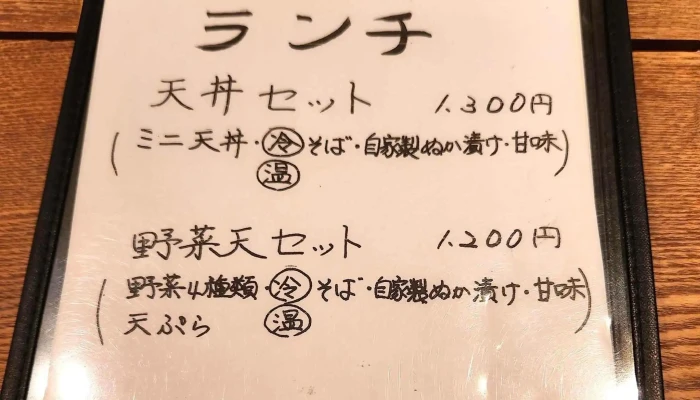 ランチ
天丼セット 1.300円
(ミニ天丼・冷そば・自家製ぬか漬け・甘味)
温
野菜天セット 1.200円
(野菜4種類・冷そば・自家製ぬか漬け・甘味)
天ぷら 温